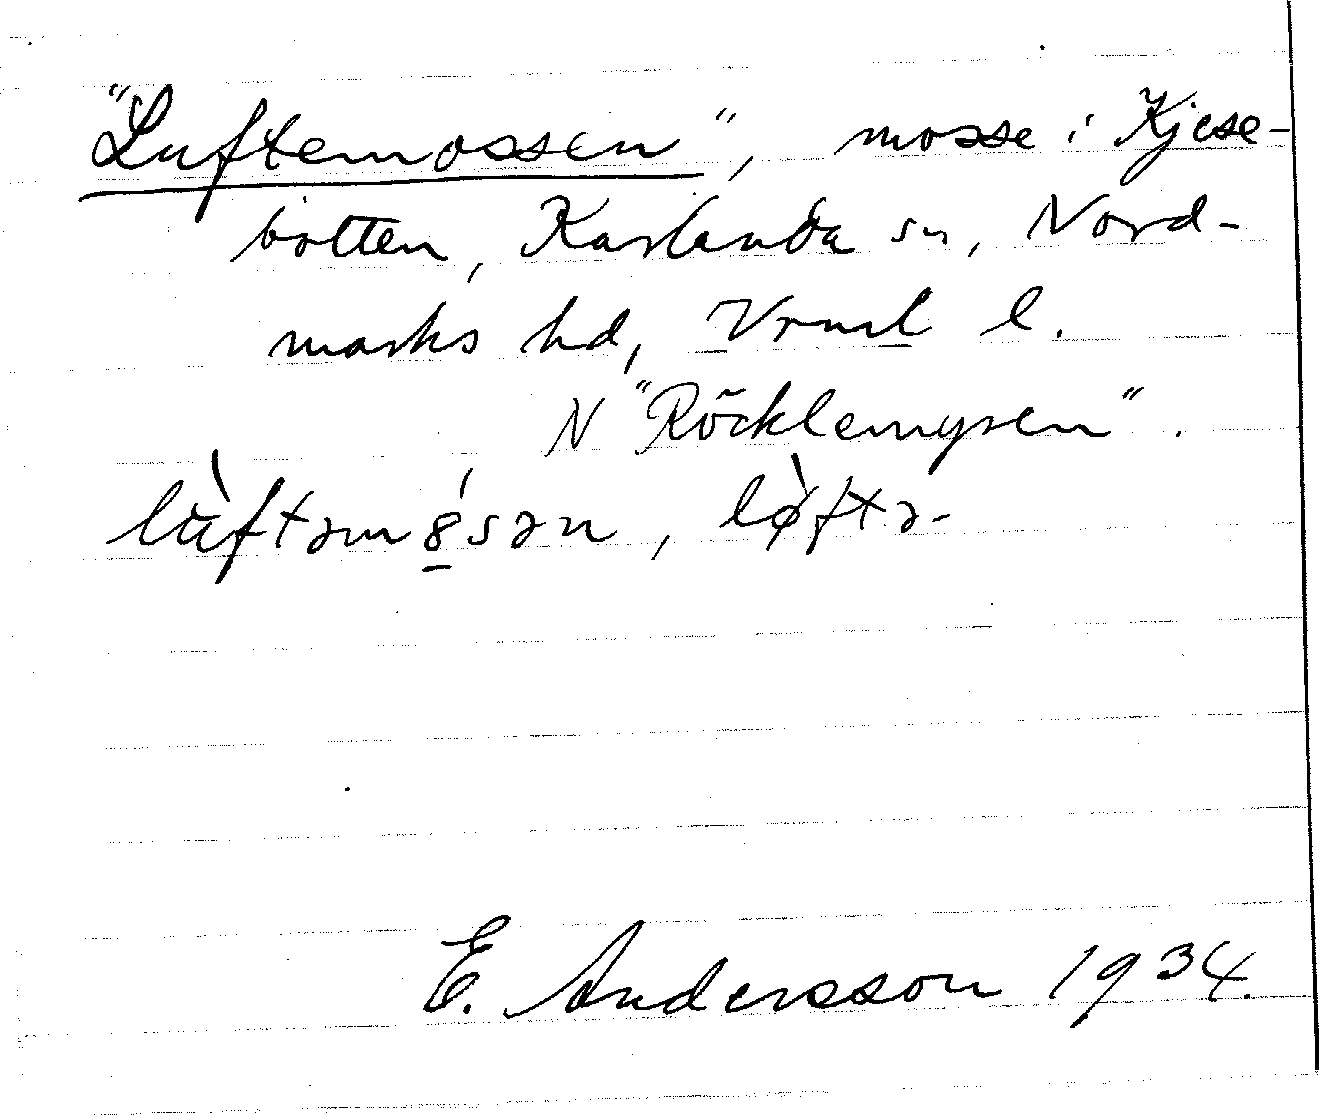 "Luftemossen", mosse i Kjese-
botten, Karlanda sn, Nord-
marks hd, Vrml l.
N "Röcklemyren".
lùftəmǿsən, lø̀ftə-
E. Andersson 1934.